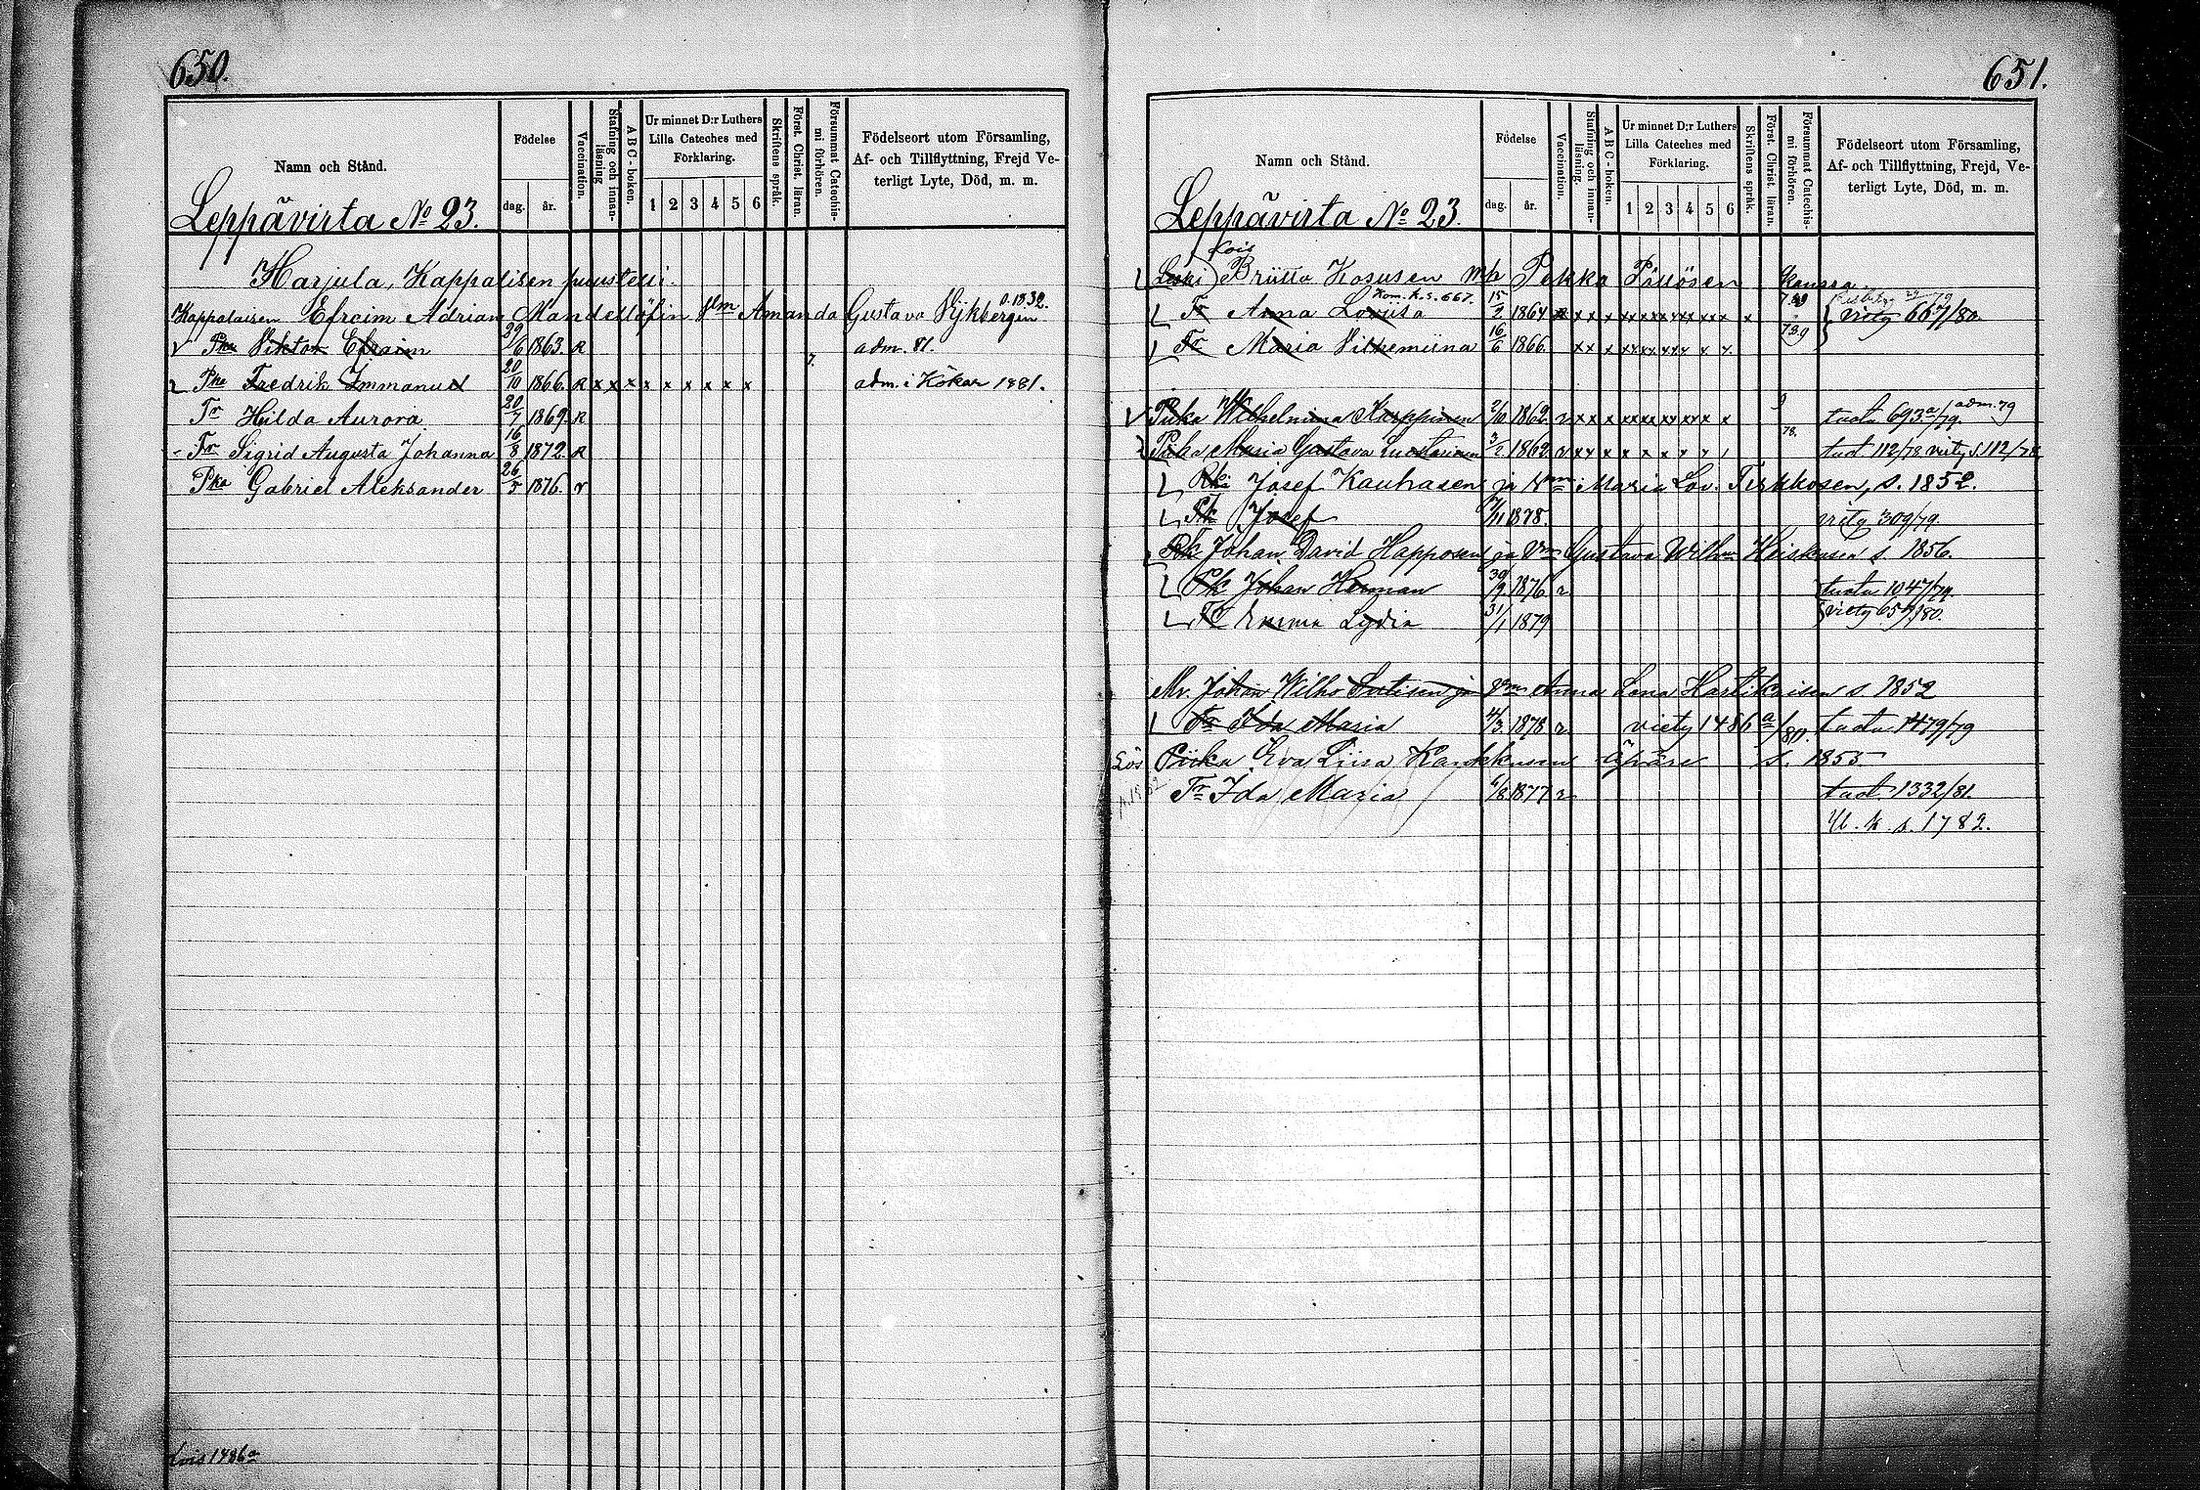 650.
Namn och Stånd.
Födelse
dag.
år.
Vaccination.
Stafning och innan-läsning
ABC-boken.
Ur minnet D:r Luthers
Lilla Cateches med
Förklaring.
1 2 3 4 5 6
Skriftens språk.
Först. Christ. läran.
Försummat Catechis-
mi förhören.
Födelseort utom Församling,
Af- och Tillflyttning, Frejd Ve-
terligt Lyte, Död, m. m.
Leppävirta No 23.
Harjula, Kappalisen puustelli.
Kappalaisen Efraim Adrian Mandellöfin Vm Amanda Gustava
Pka Viktor Efraim 29/6 1863. R adm. 81.
Pka Fredrik Immanuel 20/10 1866. R x x x x x x x x x adm. i Kökar 1881.
Tr Hilda Aurora 20/7 1869. R
Tr Sigrid Augusta Johanna 16/8 1872. R
Pka Gabriel Aleksander 26/5 1876. r
651.
Namn och Stånd.
Födelse
dag.
år.
Vaccination.
Stafning och innan-läsning.
ABC-boken.
Ur minnet D:r Luthers
Lilla Cateches med
Förklaring.
1 2 3 4 5 6
Skriftens språk.
Först. Christ. läran.
Försummat Catechis-
mi förhören.
Födelseort utom Församling,
Af- och Tillflyttning, Frejd, Ve-
terligt Lyte, Död, m. m.
Leppävirta No 23.
Leski Briitta Kosusen Pekka Pällösen kanssa
Tr Anna Loviisa 15/2 1864 viety 667/80.
Tr Maria Vilhemiina 16/6 1866.
Piika Wilhelmina Karppinen 2/10 1862. tuotu 693a/79. adm. 79
Piika Maria Gustava 3/2 1862 tuot 112/78 viety s. 112/78
Rki Josef Kauhasen ja Vm Maria Lov. Tirkkosen, s. 1852.
Pk Josef 1878. viety 309/79.
Rk Johan David Happosen ja Vm Gustava Wilh. Heiskasen s. 1856.
Pk Johan Herman 30/9 1876 r tuotu 1047/79
Tr Emma Lydia 31/1 1879 viety 657/80.
Mv. Johan Wilho ja Vm Anna Lena Hartikaisen s. 1852
Tr Ida Maria 4/3 1878 r viety 1486a/80. tuotu 1479/79
Piika Eva Liisa Karkkusen äpäre s. 1855
Tr Ida Maria 6/8 1877 r tuot. 1332/81.
U. k. s. 1782.